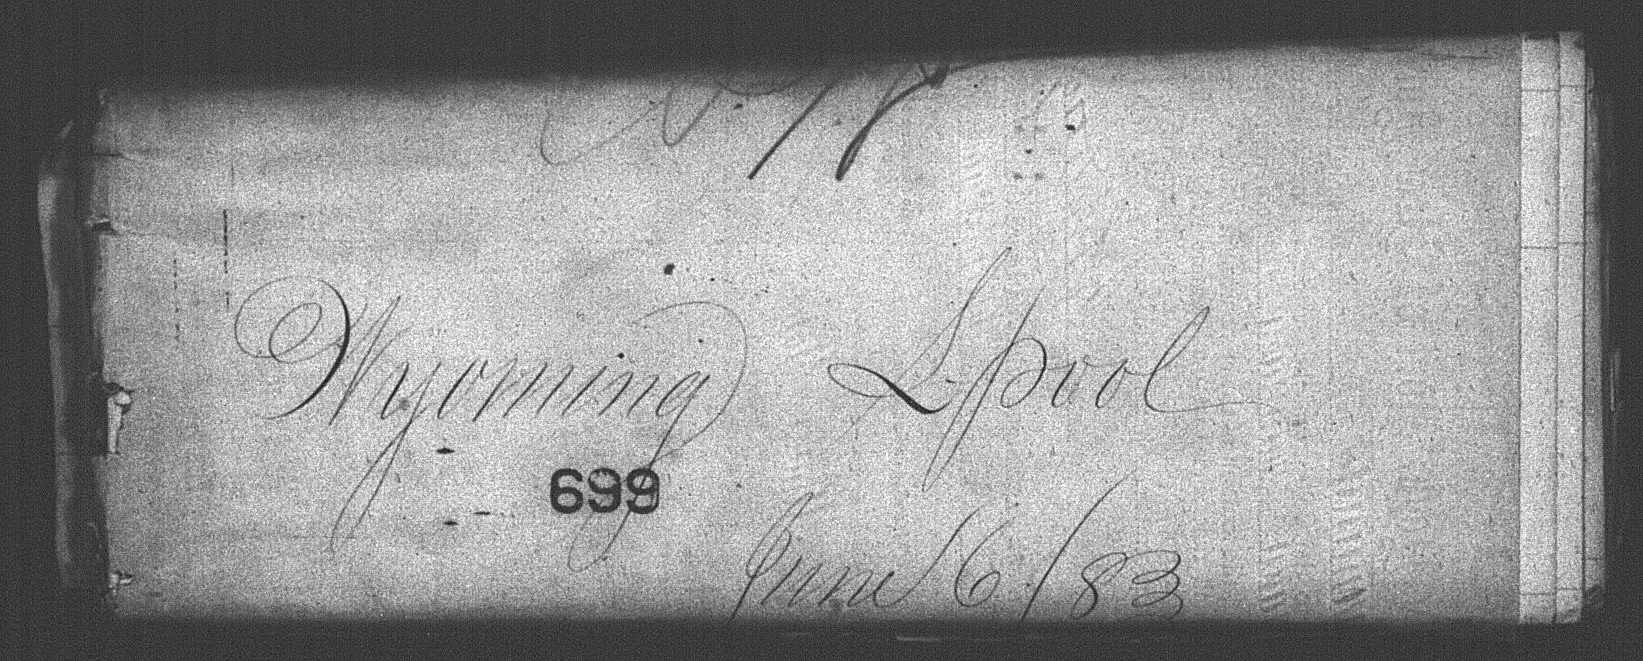 Wyoming Lpool
699
June 6/83